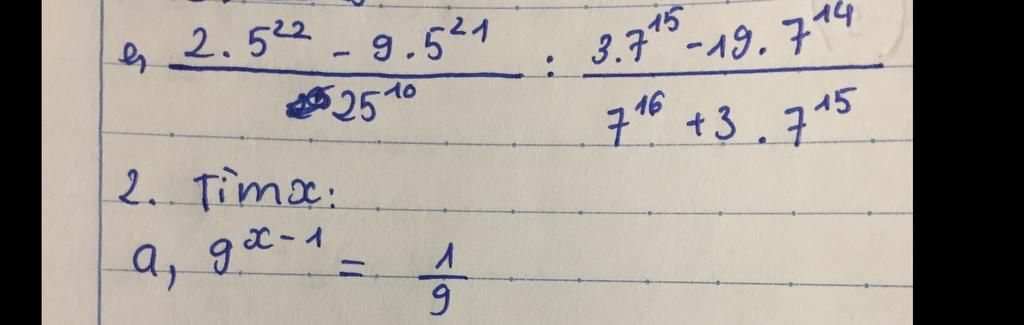 e, (2 . 5²² - 9 . 5²¹)/(25¹⁰) : (3.7¹⁵ - 19 . 7¹⁴)/(7¹⁶ + 3 . 7¹⁵)
2. Tìm x:
a, 9ˣ⁻¹ = 1/9